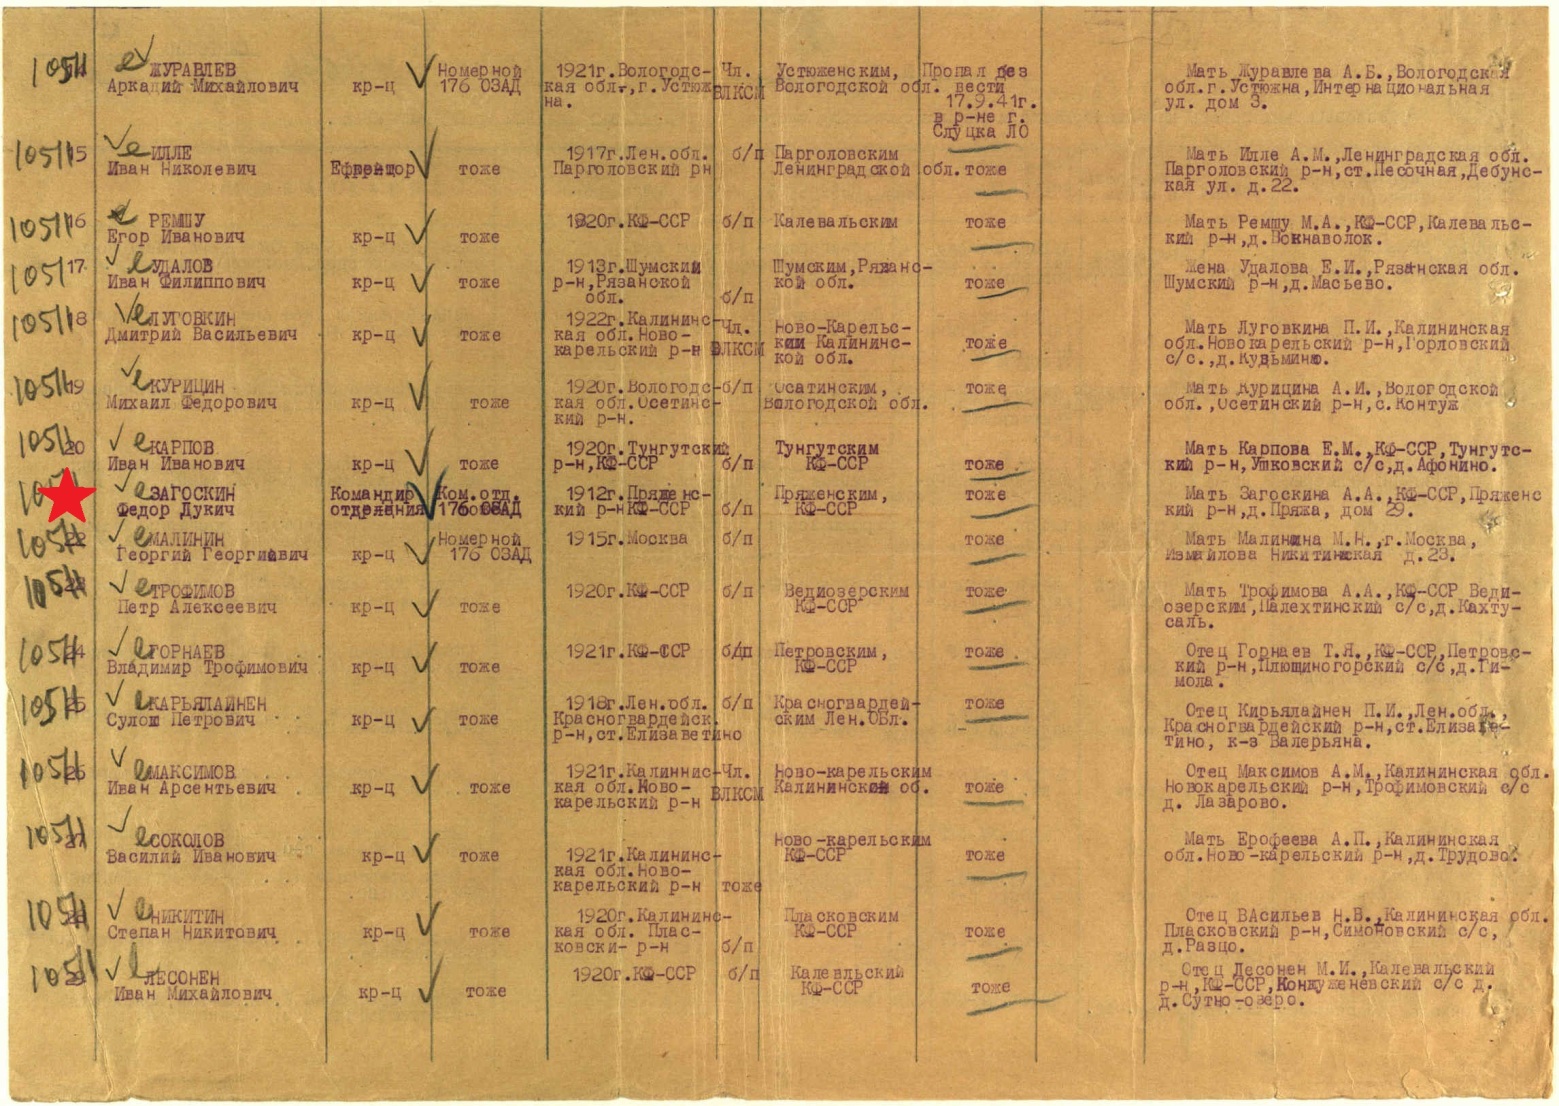 105/1 14 ЖУРАВЛЕВ Аркадий Михайлович
кр-ц
Номерной
176 ОЗАД
1921г.Вологодс-
кая обл., г.Устюж
на.
Чл.
ВЛКСМ
Устюженским,
Вологодской обл.
Пропал без
вести
17.9.41г.
в р-не г.
Слуцка ЛО
Мать Журавлева А.Б.,Вологодская
обл.г.Устюжна,Интернациональная
ул. дом 3.
105/1 15 ИЛЛЕ
Иван Николевич
Ефрейтор
тоже
1917г.Лен.обл.
Парголовский рн
б/п
Парголовским
Ленинградской обл.
тоже
Мать Илле А.М.,Ленинградская обл.
Парголовский р-н,ст.Песочная,Дебунс-
кая ул. д.22.
105/1 16 РЕМШУ
Егор Иванович
кр-ц
тоже
1920г.КФ-ССР
б/п
Калевальским
тоже
Мать Ремшу М.А.,КФ-ССР,Калевальс-
кий р-н,д.Вокнаволок.
105/1 17 УДАЛОВ
Иван Филиппович
кр-ц
тоже
1913г.Шумский
р-н,Рязанской
обл.
б/п
Шумским,Рязанс-
кой обл.
тоже
Жена Удалова Е.И.,Рязанская обл.
Шумский р-н,д.Масьево.
105/1 18 ЛУГОВКИН
Дмитрий Васильевич
кр-ц
тоже
1922г.Калининс-
кая обл.Ново-
карельский р-н
Чл.
ВЛКСМ
Ново-Карельс-
кии Калининс-
кой обл.
тоже
Мать Луговкина П.И.,Калининская
обл.Новокарельский р-н,Горловский
с/с.,д.Кудьмино.
105/1 19 КУРИЦИН
Михаил Федорович
кр-ц
тоже
1920г.Вологодс-
кая обл.Осетинс-
кий р-н.
б/п
Осатинским,
Вологодской обл.
тоже
Мать Курицина А.И.,Вологодской
обл.,Осетинский р-н,с.Контуж
105/1 20 КАРПОВ
Иван Иванович
кр-ц
тоже
1920г.Тунгутский
р-н,КФ-ССР
б/п
Тунгутским
КФ-ССР
тоже
Мать Карпова Е.М.,КФ-ССР,Тунгутс-
кий р-н,Ушковский с/с,д.Афонино.
ЗАГОСКИН
Федор Лукич
Командир
отделения
Ком.отд.
176 ОЗАД
1912г.Пряженс-
кий р-нКФ-ССР
б/п
Пряженским,
КФ-ССР
тоже
Мать Загоскина А.А.,КФ-ССР,Пряженс
кий р-н,д.Пряжа, дом 29.
105/1 22 МАЛИНИН
Георгий Георгиевич
кр-ц
Номерной
176 ОЗАД
1915г.Москва
б/п
тоже
Мать Малинина М.Н.,г.Москва,
Измайлова Никитинская д.23.
105/1 ТРОФИМОВ
Петр Алексеевич
кр-ц
тоже
1920г.КФ-ССР
б/п
Ведиозерским
КФ-ССР
тоже
Мать Трофимова А.А.,КФ-ССР Веди-
озерским,Палехтинский с/с,д.Кахту-
саль.
105/1 24 ГОРНАЕВ
Владимир Трофимович
кр-ц
тоже
1921г.КФ-ССР
б/п
Петровским,
КФ-ССР
тоже
Отец Горнаев Т.Я.,КФ-ССР,Петровс-
кий р-н,Плющиногорский с/с,д.Ги-
мола.
105/1 25 КАРЬЯЛАЙНЕН
Сулош Петрович
кр-ц
тоже
1918г.Лен.обл.
Красногвардейск.
р-н,ст.Елизаветино
б/п
Красногвардей-
ским Лен.ОБл.
тоже
Отец Кирьялайнен П.И.,Лен.обл.,
Красногвардейский р-н,ст.Елизаве-
тино, к-з Валерьяна.
105/1 26 МАКСИМОВ
Иван Арсентьевич
кр-ц
тоже
1921г.Калиннис-
кая обл.Ново-
карельский р-н
Чл.
ВЛКСМ
Ново-карельским
Калининской об.
тоже
Отец Максимов А.М.,Калининская обл.
Новокарельский р-н,Трофимовский с/с
д. Лазарово.
105/1 27 СОКОЛОВ
Василий Иванович
кр-ц
тоже
1921г.Калининс-
кая обл.Ново-
карельский р-н
тоже
Ново-карельским
КФ-ССР
тоже
Мать Ерофеева А.П.,Калининская
обл.Ново-карельский р-н,д.Трудово.
105/1 НИКИТИН
Степан Никитович
кр-ц
тоже
1920г.Калининс-
кая обл. Плас-
ковски- р-н
б/п
Пласковским
КФ-ССР
тоже
Отец ВАсильев Н.В.,Калининская обл.
Пласковский р-н,Симоновский с/с,
д.Разцо.
105/1 ЛЕСОНЕН
Иван Михайлович
кр-ц
тоже
1920г.КФ-ССР
б/п
Калевльский
КФ-ССР
тоже
Отец Лесонен М.И.,Калевальский
р-н,КФ-ССР,Контуженевский с/с д.
д.Сутно-озеро.